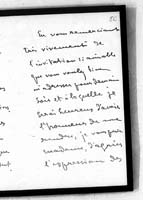 50
En vous remerciant
très vivement de
l'invitation si aimable
que vous voulez bien
m'adresser pour demain
soir et à laquelle je
serai heureux d'avoir
l'honneur de me
rendre, je vous prie
madame, d'agréer
l'expression des